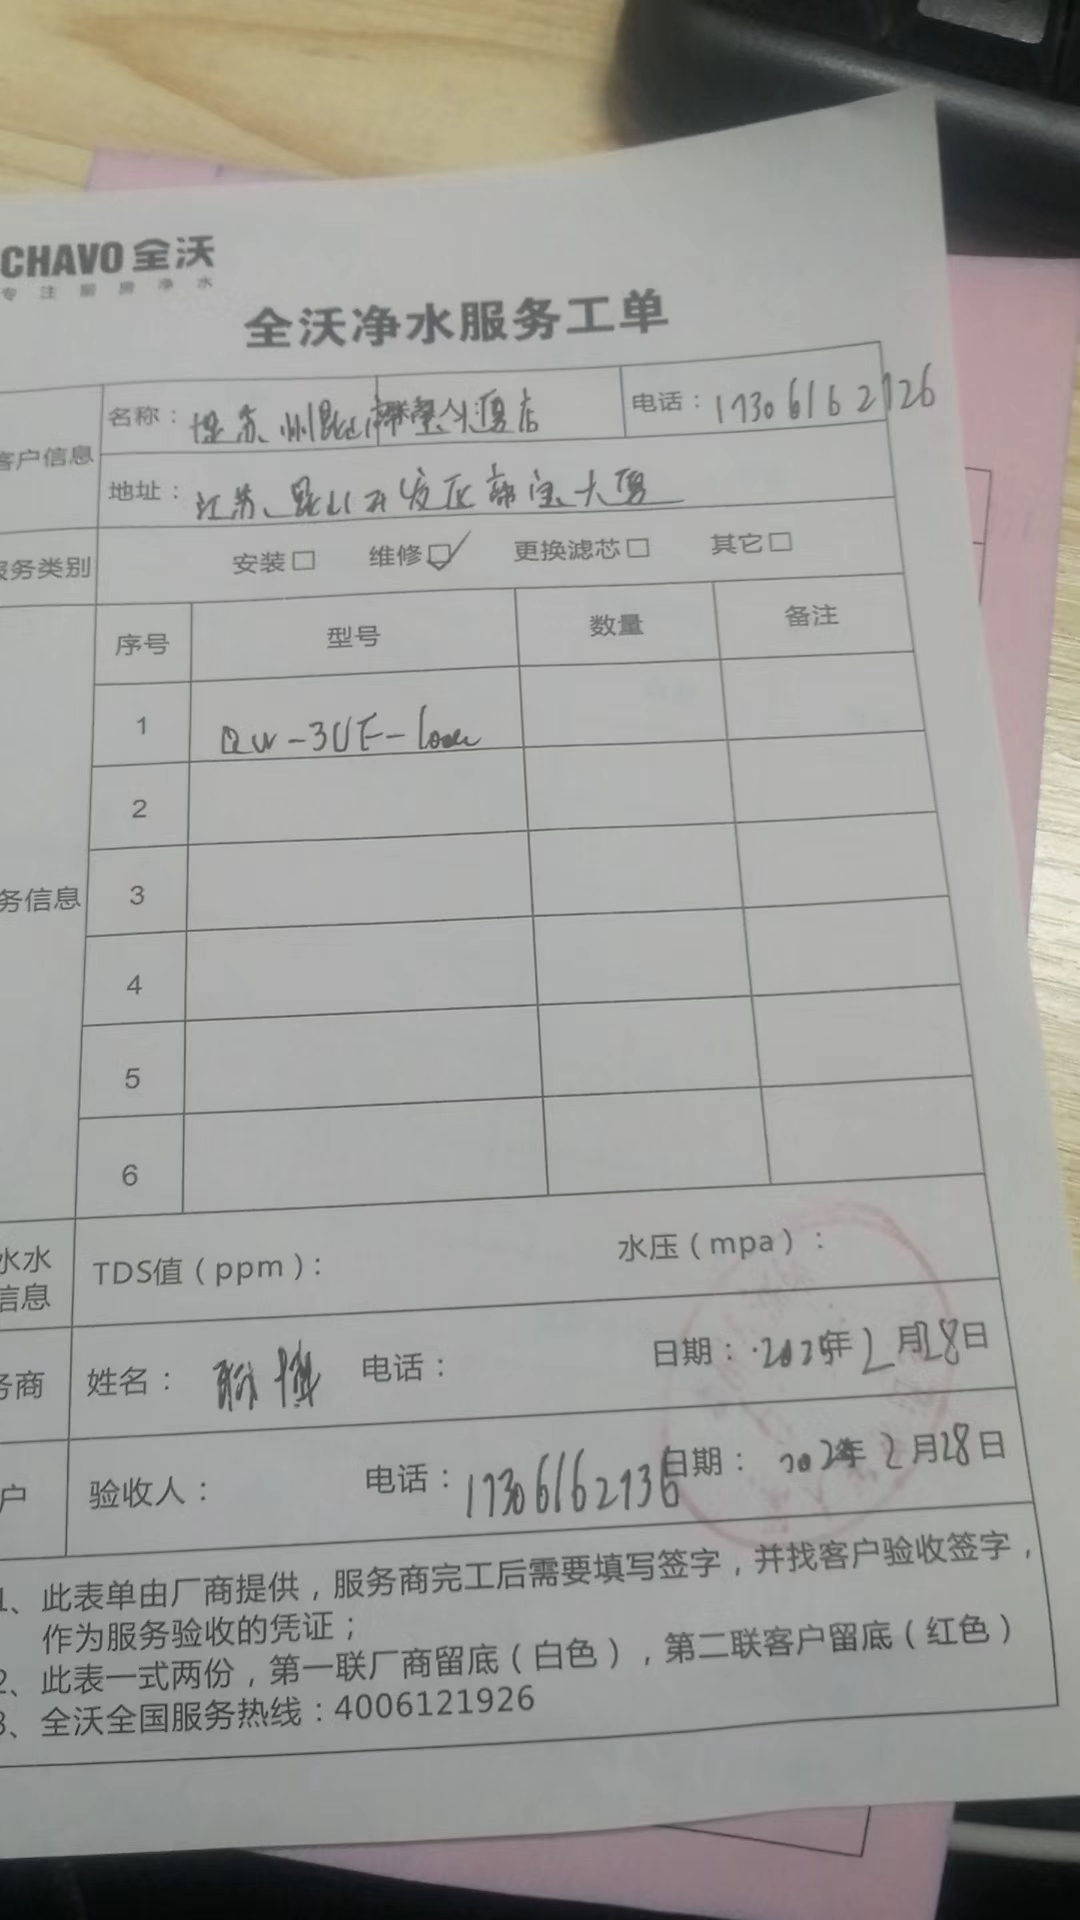 CHAVO 全沃
专注厨房净水
全沃净水服务工单
客户信息 名称： 电话：
地址：江苏昆山开发区 大厦
服务类别 安装□ 维修☑ 更换滤芯□ 其它□
序号 型号 数量 备注
1 QW-3UF-
2
务信息 3
4
5
6
水水
信息 TDS值（ppm）： 水压（mpa）：
务商 姓名： 电话： 日期：2025年2月28日
户 验收人： 电话：17306162736 日期： 年2月28日
1、此表单由厂商提供，服务商完工后需要填写签字，并找客户验收签字，
作为服务验收的凭证；
2、此表一式两份，第一联厂商留底（白色），第二联客户留底（红色）
3、全沃全国服务热线：4006121926